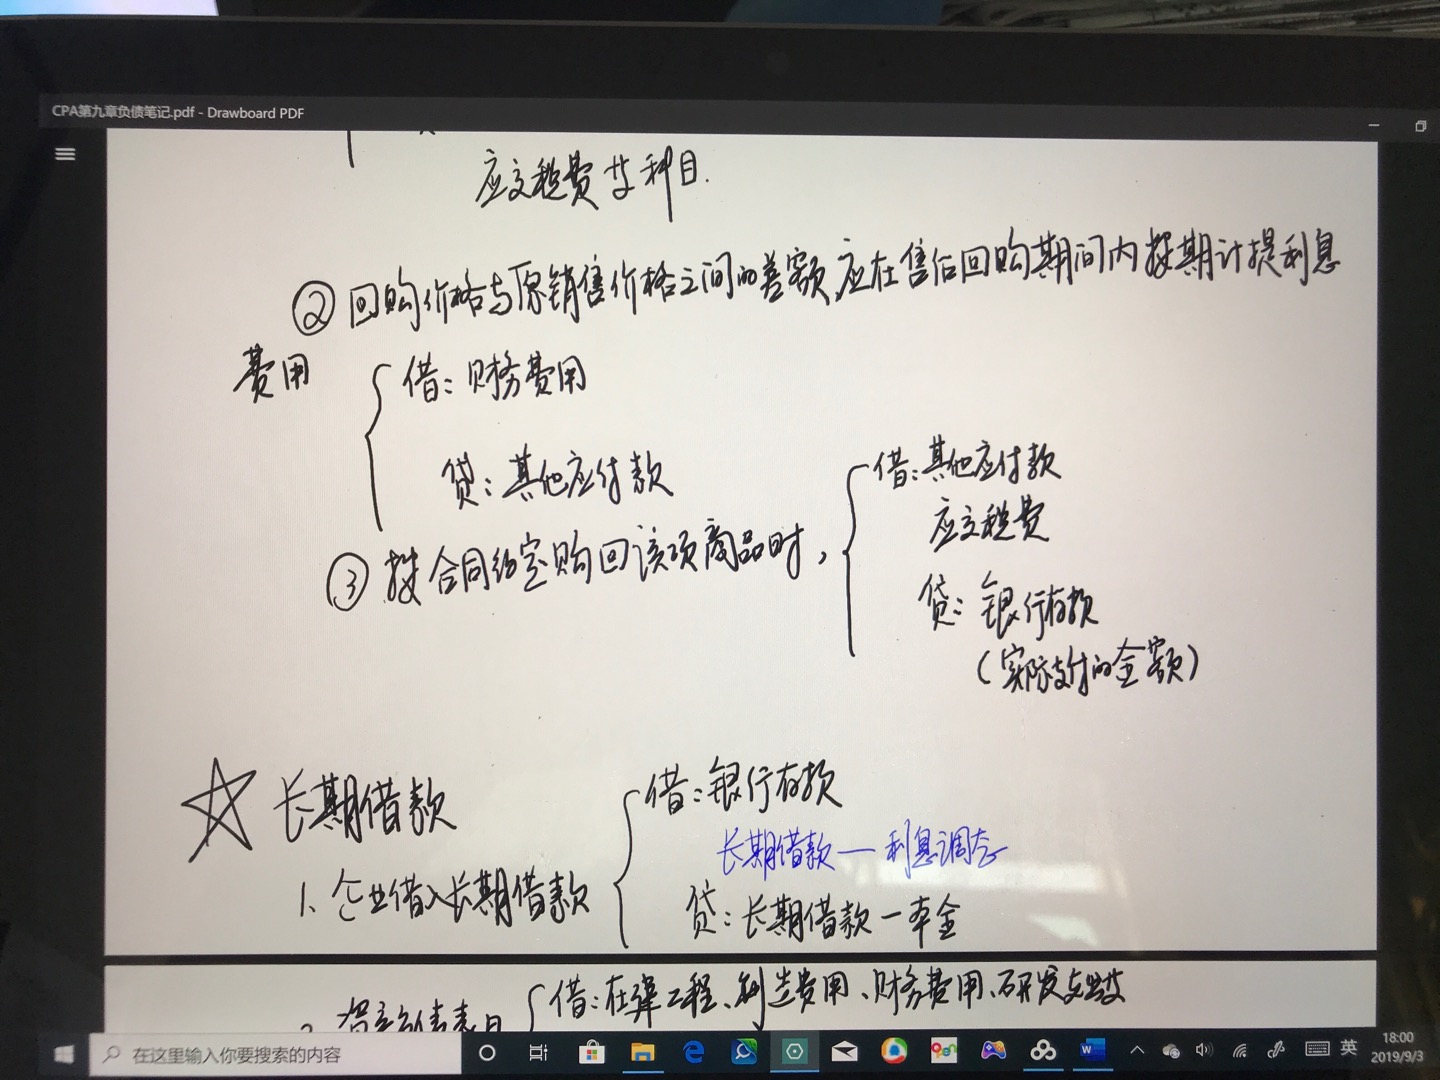 CPA第九章负债笔记.pdf - Drawboard PDF
应交税费等科目.
② 回购价格与原销售价格之间的差额,应在售后回购期间内按期计提利息
费用
借:财务费用
贷:其他应付款
③ 按合同约定购回该项商品时,
借:其他应付款
应交税费
贷:银行存款
(实际支付的金额)
☆ 长期借款
1、企业借入长期借款
借:银行存款
长期借款—利息调整
贷:长期借款—本金
借:在建工程、制造费用、财务费用、研发支出等
在这里输入你要搜索的内容
英
18:00
2019/9/3